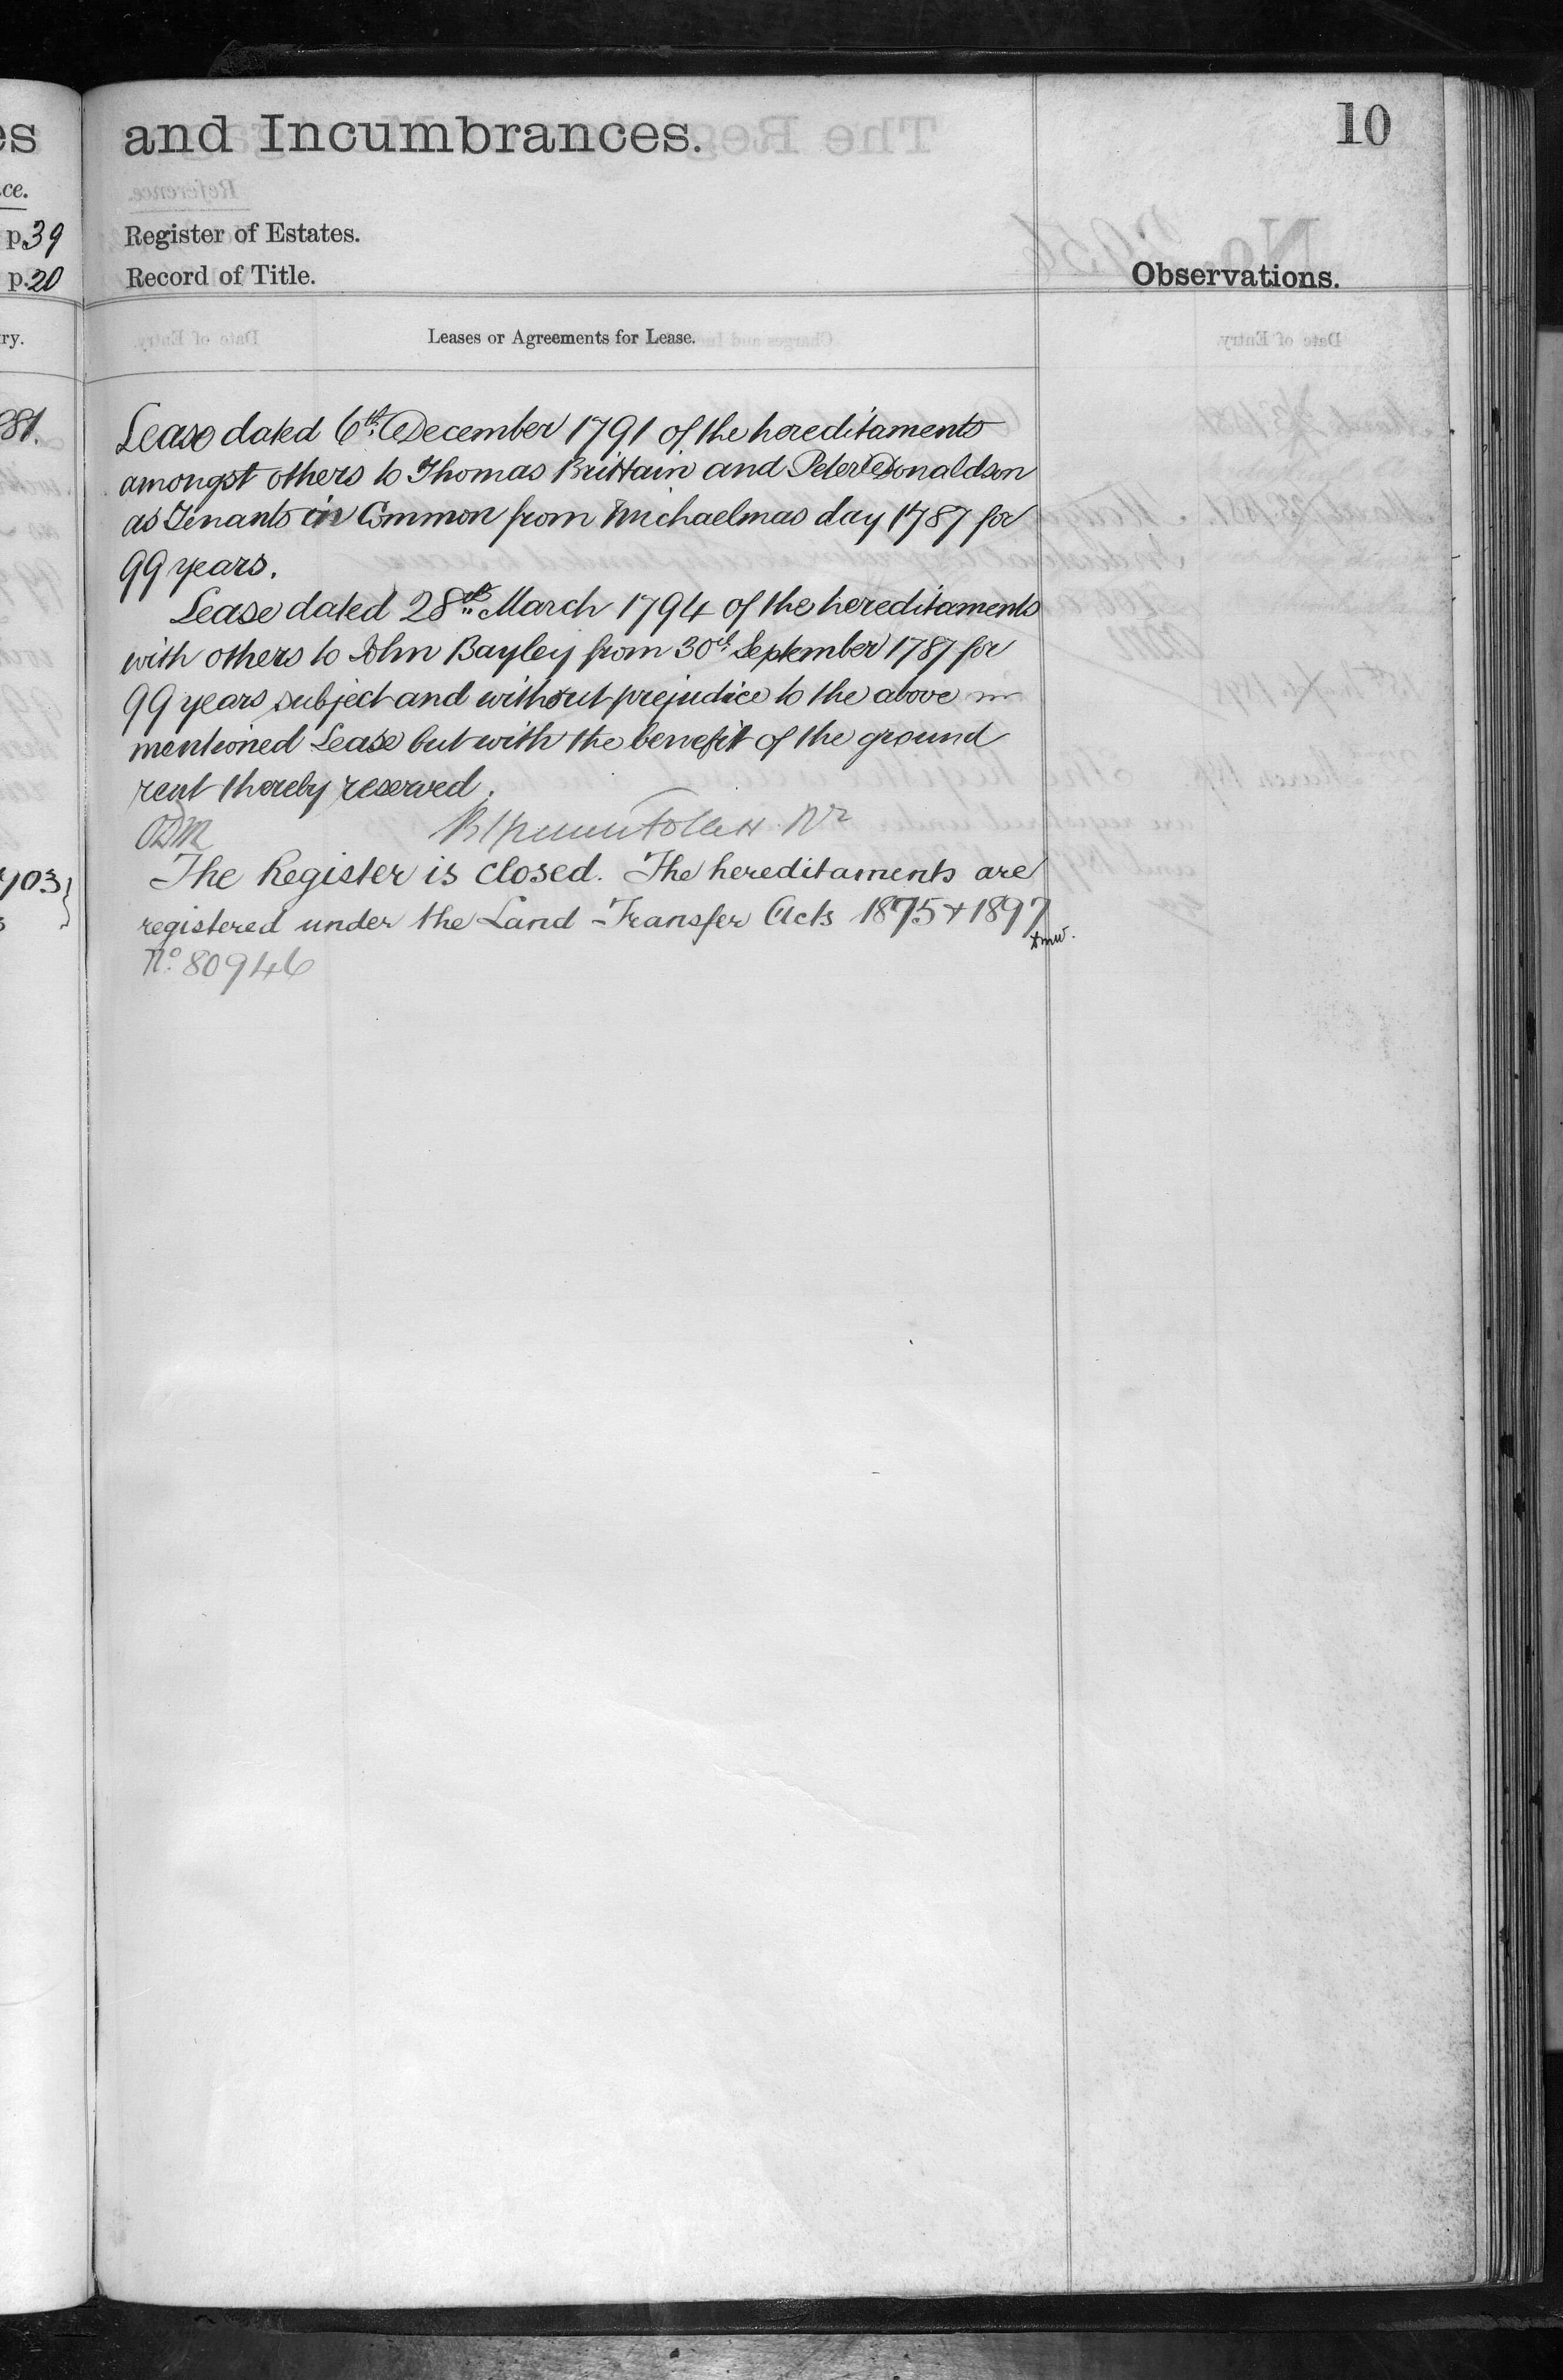 and Incumbrances.
10
Register of Estates.
Record of Title.
Observations.
Leases or Agreements for Lease.
Lease dated 6th December 1791 of the hereditaments
amongst others to Thomas Brittain and Peter Donaldson
as Tenants in Common from Michaelmas day 1787 for
99 years.
Lease dated 28th March 1794 of the hereditaments
with others to John Bayley from 30th September 1787 for
99 years subject and without prejudice to the above
mentioned Lease but with the benefit of the ground
rent thereby reserved.
The Register is closed. The hereditaments are
registered under the Land Transfer Acts 1875 + 1897
No. 80946
es
ce.
p.39
p.20
ry.